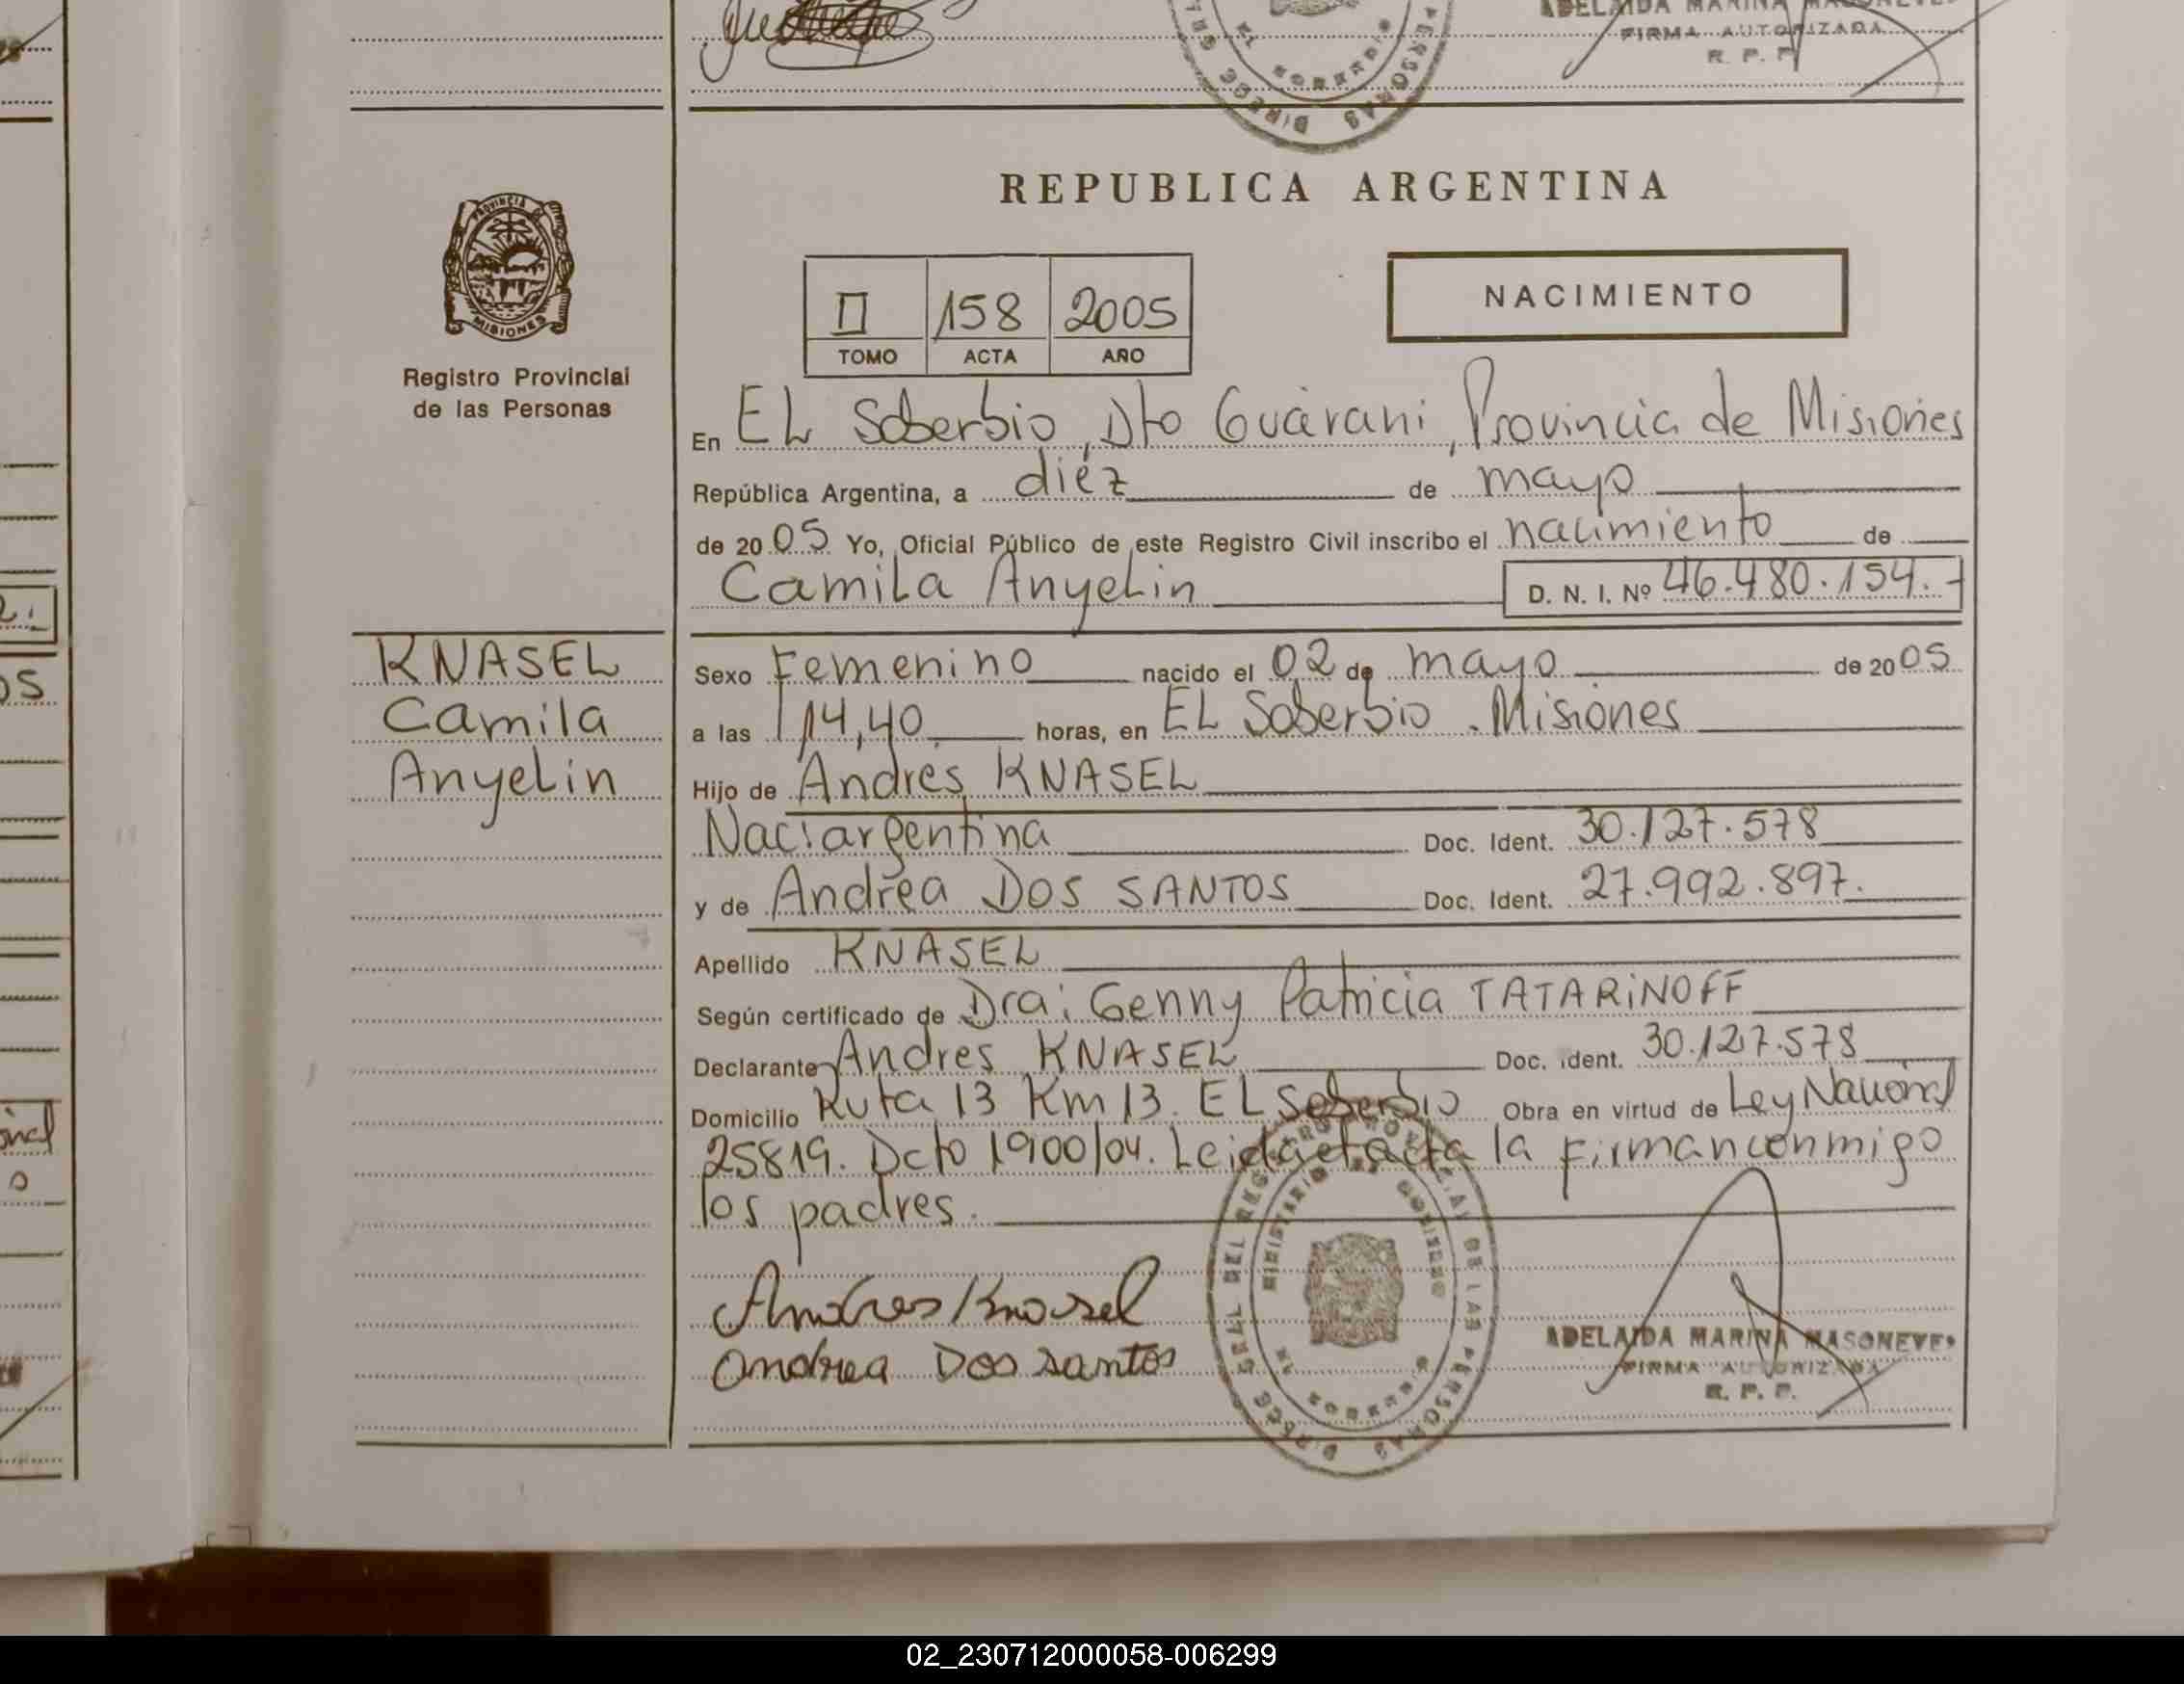 ADELAIDA MARINA MASONEVES
FIRMA AUTORIZADA
R. P. P.
REPUBLICA ARGENTINA
PROVINCIA DE
MISIONES
Registro Provincial
de las Personas
II 158 2005
TOMO ACTA AÑO
NACIMIENTO
En EL Soberbio, Dto Guarani, Provincia de Misiones
República Argentina, a diez de mayo
de 2005 Yo, Oficial Público de este Registro Civil inscribo el nacimiento de
Camila Anyelin D. N. I. Nº 46.480.154.-
KNASEL
Camila
Anyelin
Sexo Femenino nacido el 02 de mayo de 2005
a las 14,40 horas, en EL Soberbio. Misiones
Hijo de Andres KNASEL
Nac: argentina Doc. Ident. 30.127.578
y de Andrea DOS SANTOS Doc. Ident. 27.992.897.
Apellido KNASEL
Según certificado de Dra: Genny Patricia TATARINOFF
Declarante Andres KNASEL Doc. ident. 30.127.578
Domicilio Ruta 13 Km 13. EL Soberbio Obra en virtud de Ley Nacional
25819. Dcto 1900/04. Leida el acta la Firman conmigo
los padres.
Andres Knasel
Andrea Dos santos
ADELAIDA MARINA MASONEVES
FIRMA AUTORIZADA
R. P. P.
02_230712000058-006299